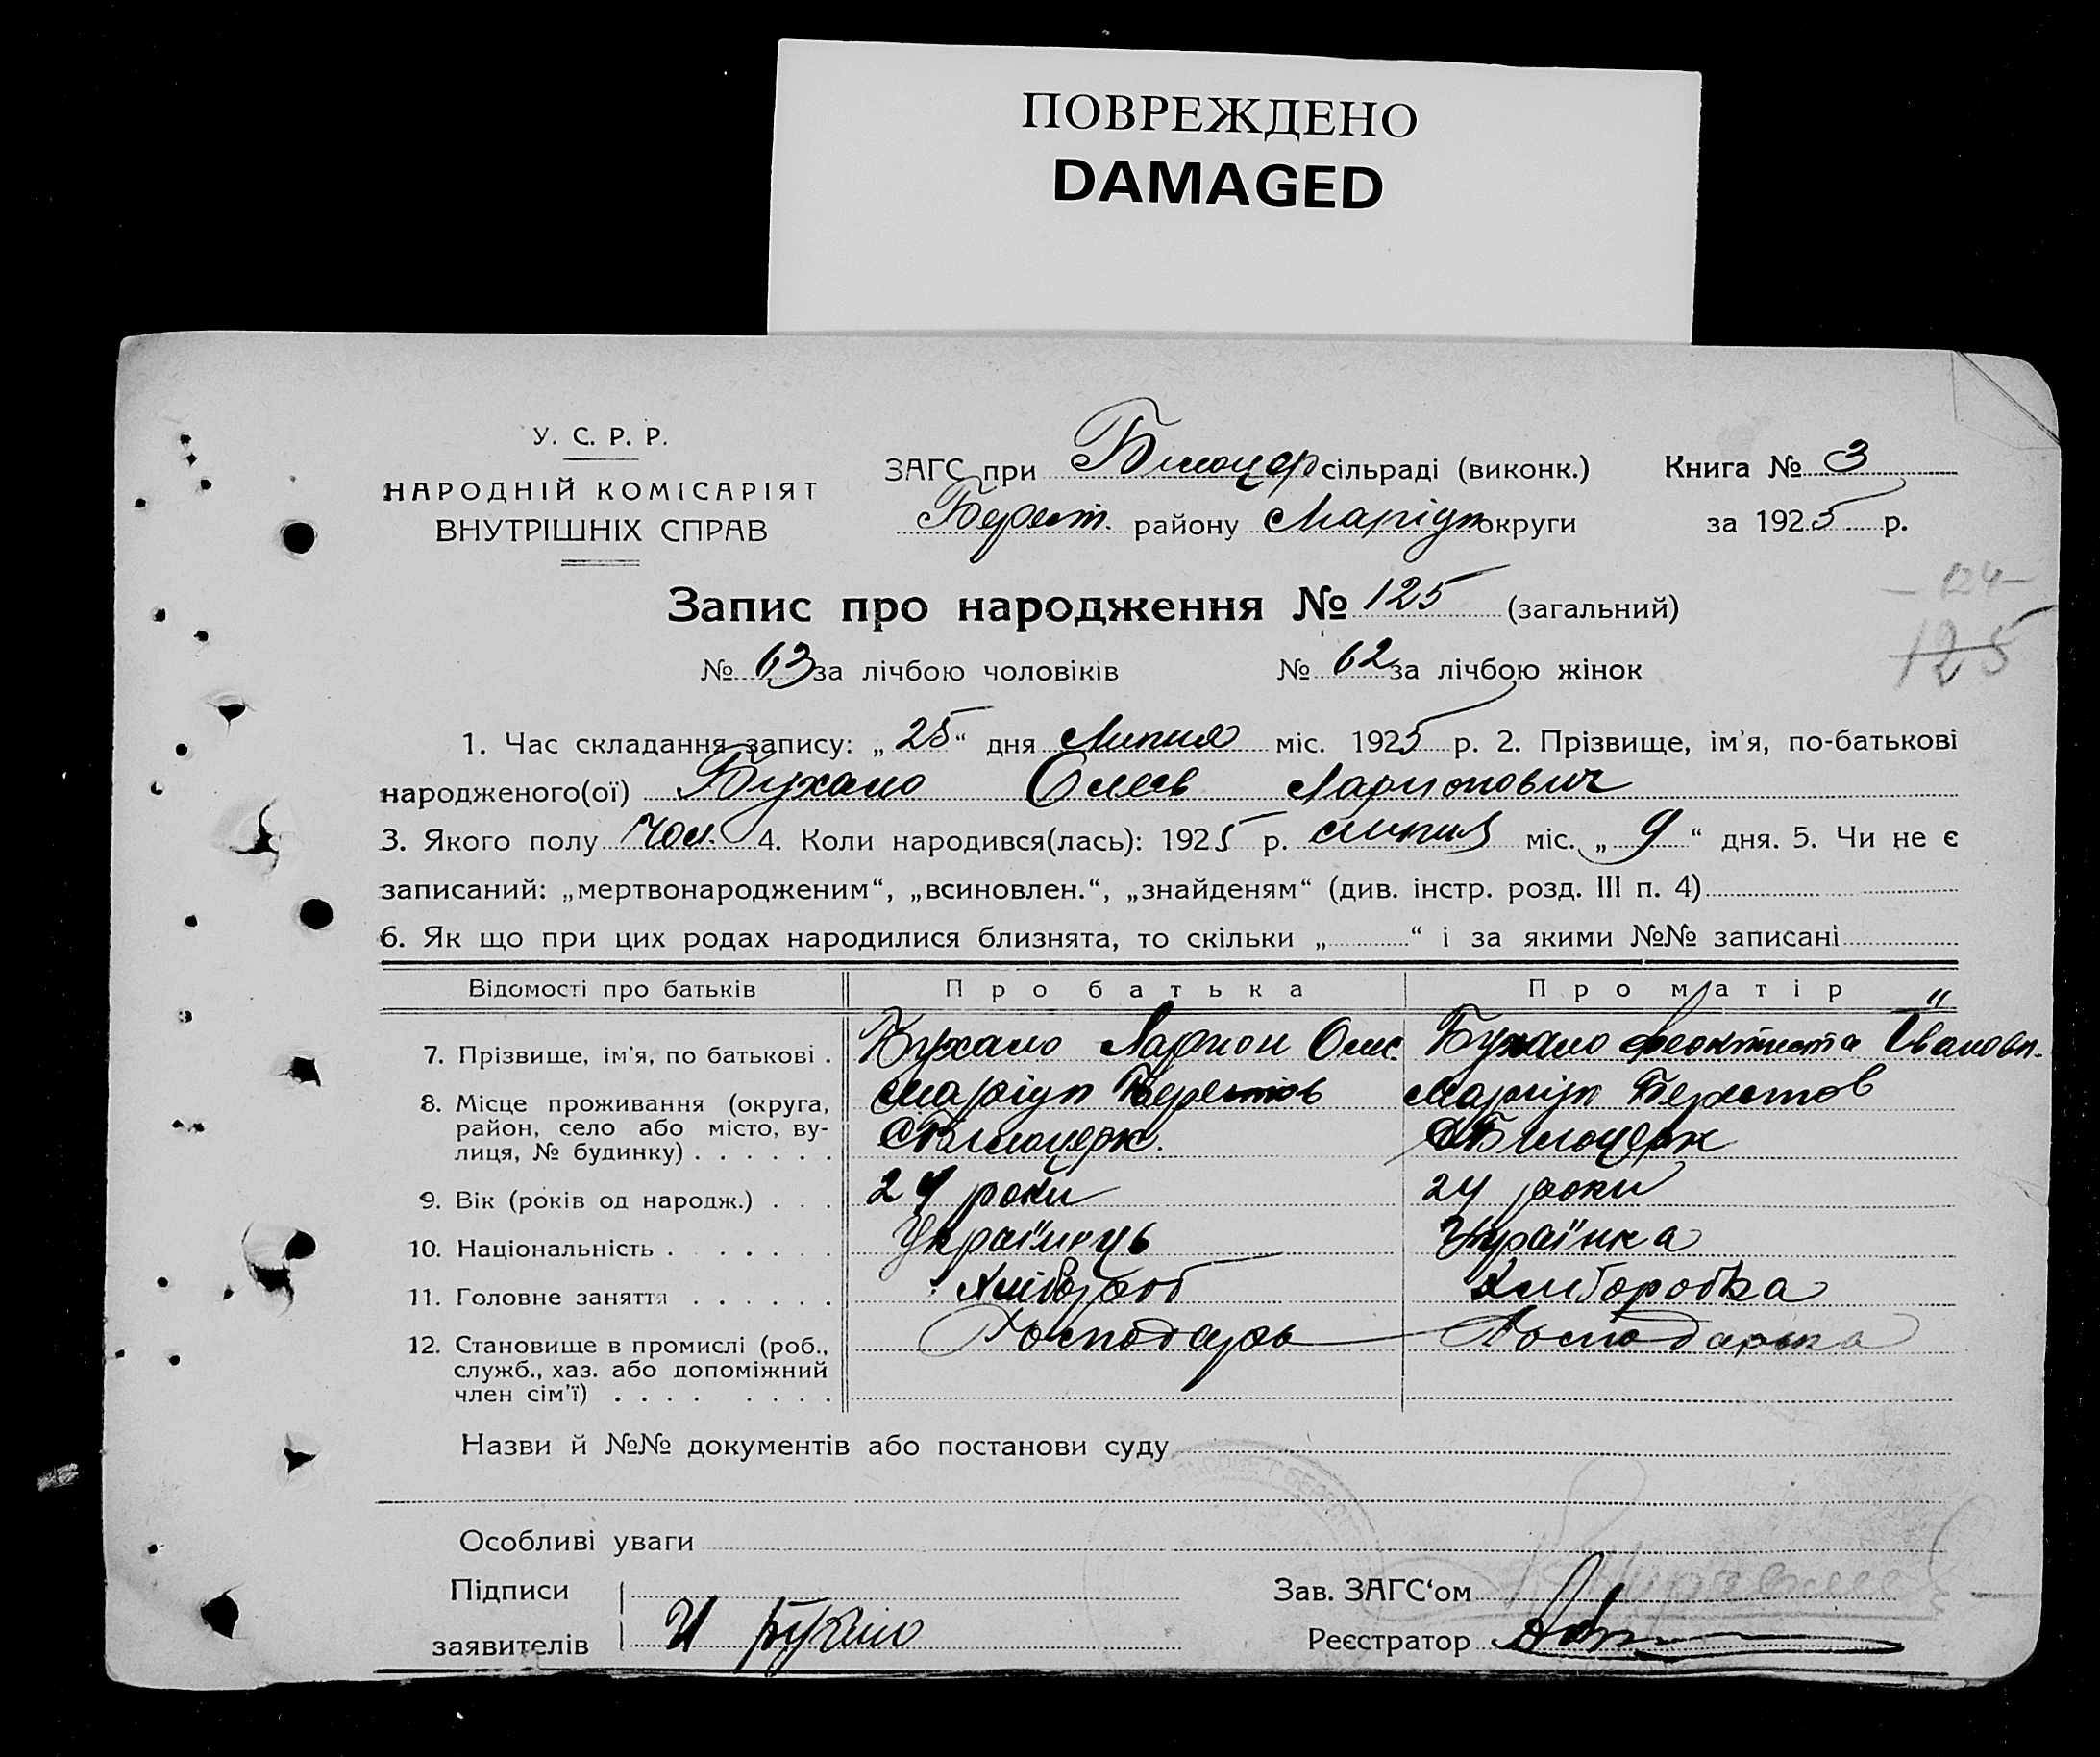 ПОВРЕЖДЕНО
DAMAGED
У. С. Р. Р.
НАРОДНІЙ КОМІСАРІЯТ
ВНУТРІШНІХ СПРАВ
ЗАГС при Билоцер сільраді (виконк.) Книга № 3
Берест. району Маріуп округи за 1925 р.
Запис про народження № 125 (загальний)
- 124 -
125
№ 63 за лічбою чоловіків № 62 за лічбою жінок
1. Час складання запису: „ 25 “ дня Липня міс. 1925 р. 2. Прізвище, ім'я, по-батькові
народженого(ої) Бухало Олесв Ларионович
3. Якого полу чол. 4. Коли народився(лась): 1925 р. липня міс. „ 9 “ дня. 5. Чи не є
записаний: „мертвонародженим“, „всиновлен.“, „знайденям“ (див. інстр. розд. III п. 4)
6. Як що при цих родах народилися близнята, то скільки „ “ і за якими №№ записані
Відомості про батьків Про батька Про матір
7. Прізвище, ім'я, по батькові . Бухало Ларион Олис. Бухало Феоктиста Іванови.
8. Місце проживання (округа, Маріуп Берестов Маріуп Берестов
район, село або місто, ву-
лиця, № будинку) . . . . . . с Билоцерк. с Билоцерк
9. Вік (років од народж.) . . . 24 роки 24 роки
10. Національність . . . . . . . Українець Українка
11. Головне заняття . . . . . . Хлібороб Хлиборобка
12. Становище в промислі (роб., Господарь Господарька
служб., хаз. або допоміжний
член сім'ї) . . . . . . . .
Назви й №№ документів або постанови суду
Особливі уваги
Підписи Зав. ЗАГС‘ом
заявителів И Бухало Реєстратор